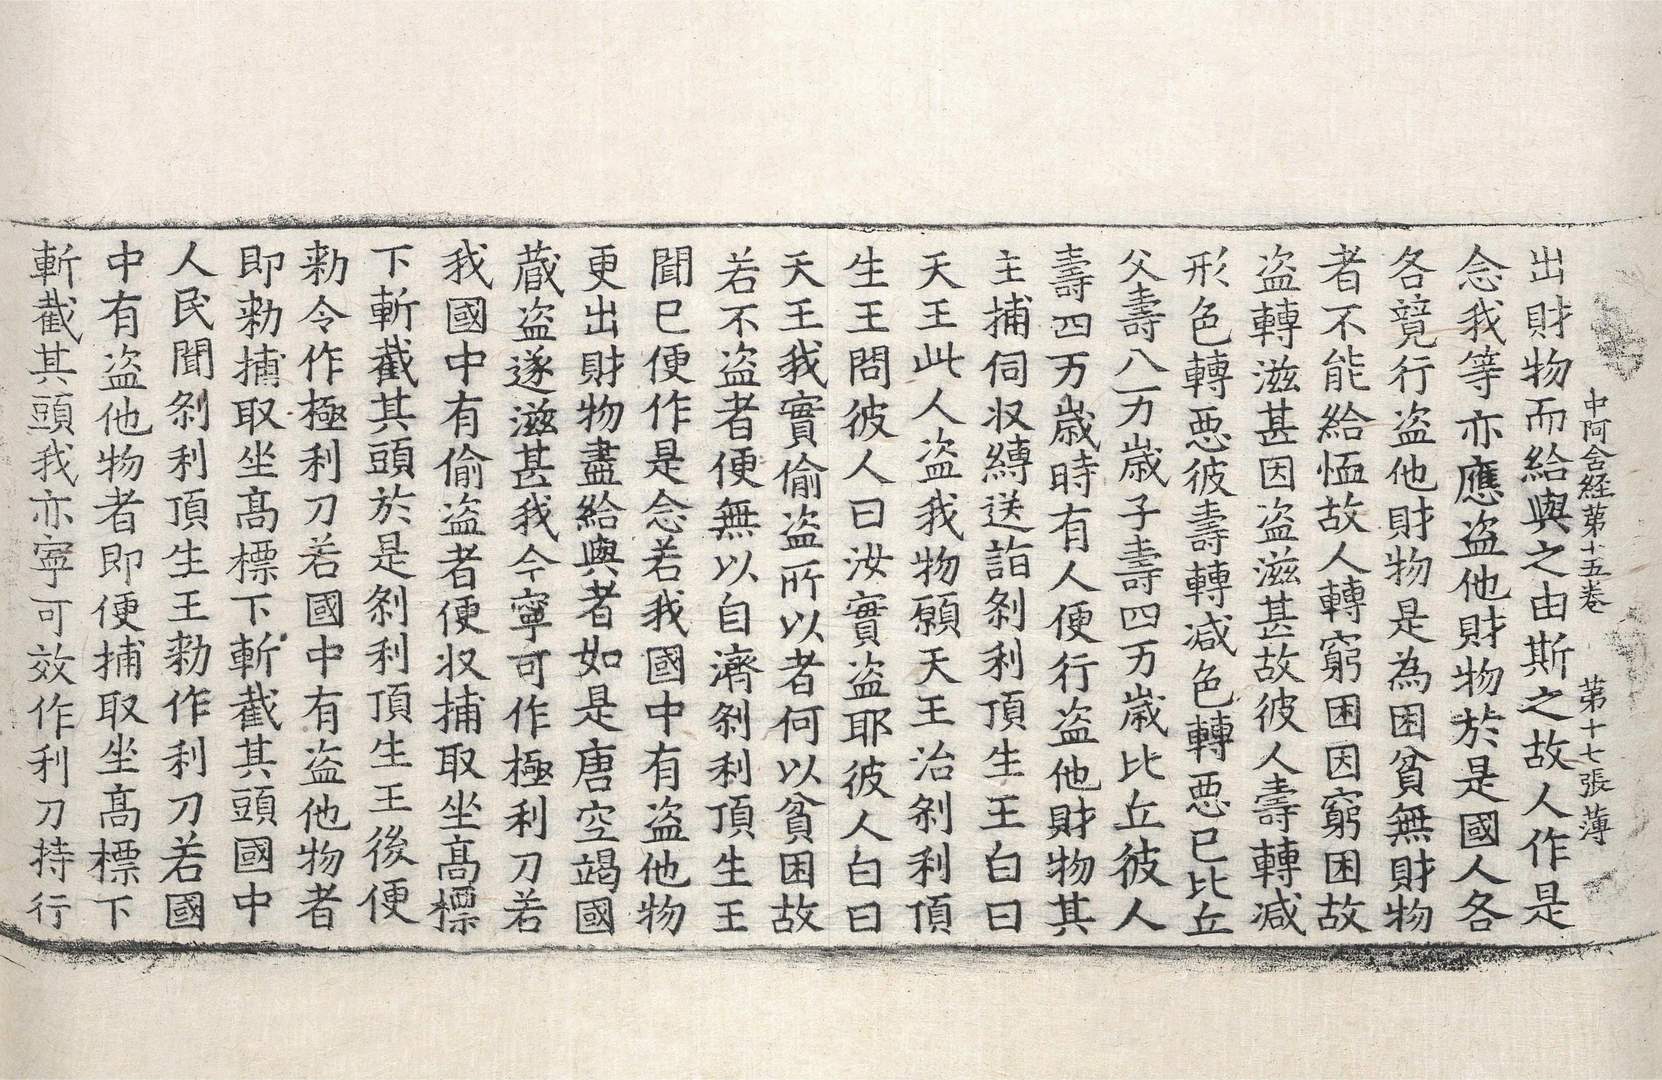 中阿含経第十五卷 第十七張 薄
出財物而給與之由斯之故人作是
念我等亦應盜他財物於是國人各
各競行盜他財物是為困貧無財物
者不能給恤故人轉窮困因窮困故
盜轉滋甚因盜滋甚故彼人壽轉減
形色轉惡彼壽轉減色轉惡已比丘
父壽八万歲子壽四万歲比丘彼人
壽四万歲時有人便行盜他財物其
主捕伺収縛送詣剎利頂生王白曰
天王此人盜我物願天王治剎利頂
生王問彼人曰汝實盜耶彼人白曰
天王我實偷盜所以者何以貧困故
若不盜者便無以自濟剎利頂生王
聞已便作是念若我國中有盜他物
更出財物盡給與者如是唐空竭國
蔵盜遂滋甚我今寧可作極利刀若
我國中有偷盜者便収捕取坐高標
下斬截其頭於是剎利頂生王後便
勑令作極利刀若國中有盜他物者
即勑捕取坐高標下斬截其頭國中
人民聞剎利頂生王勑作利刀若國
中有盜他物者即便捕取坐高標下
斬截其頭我亦寧可效作利刀持行